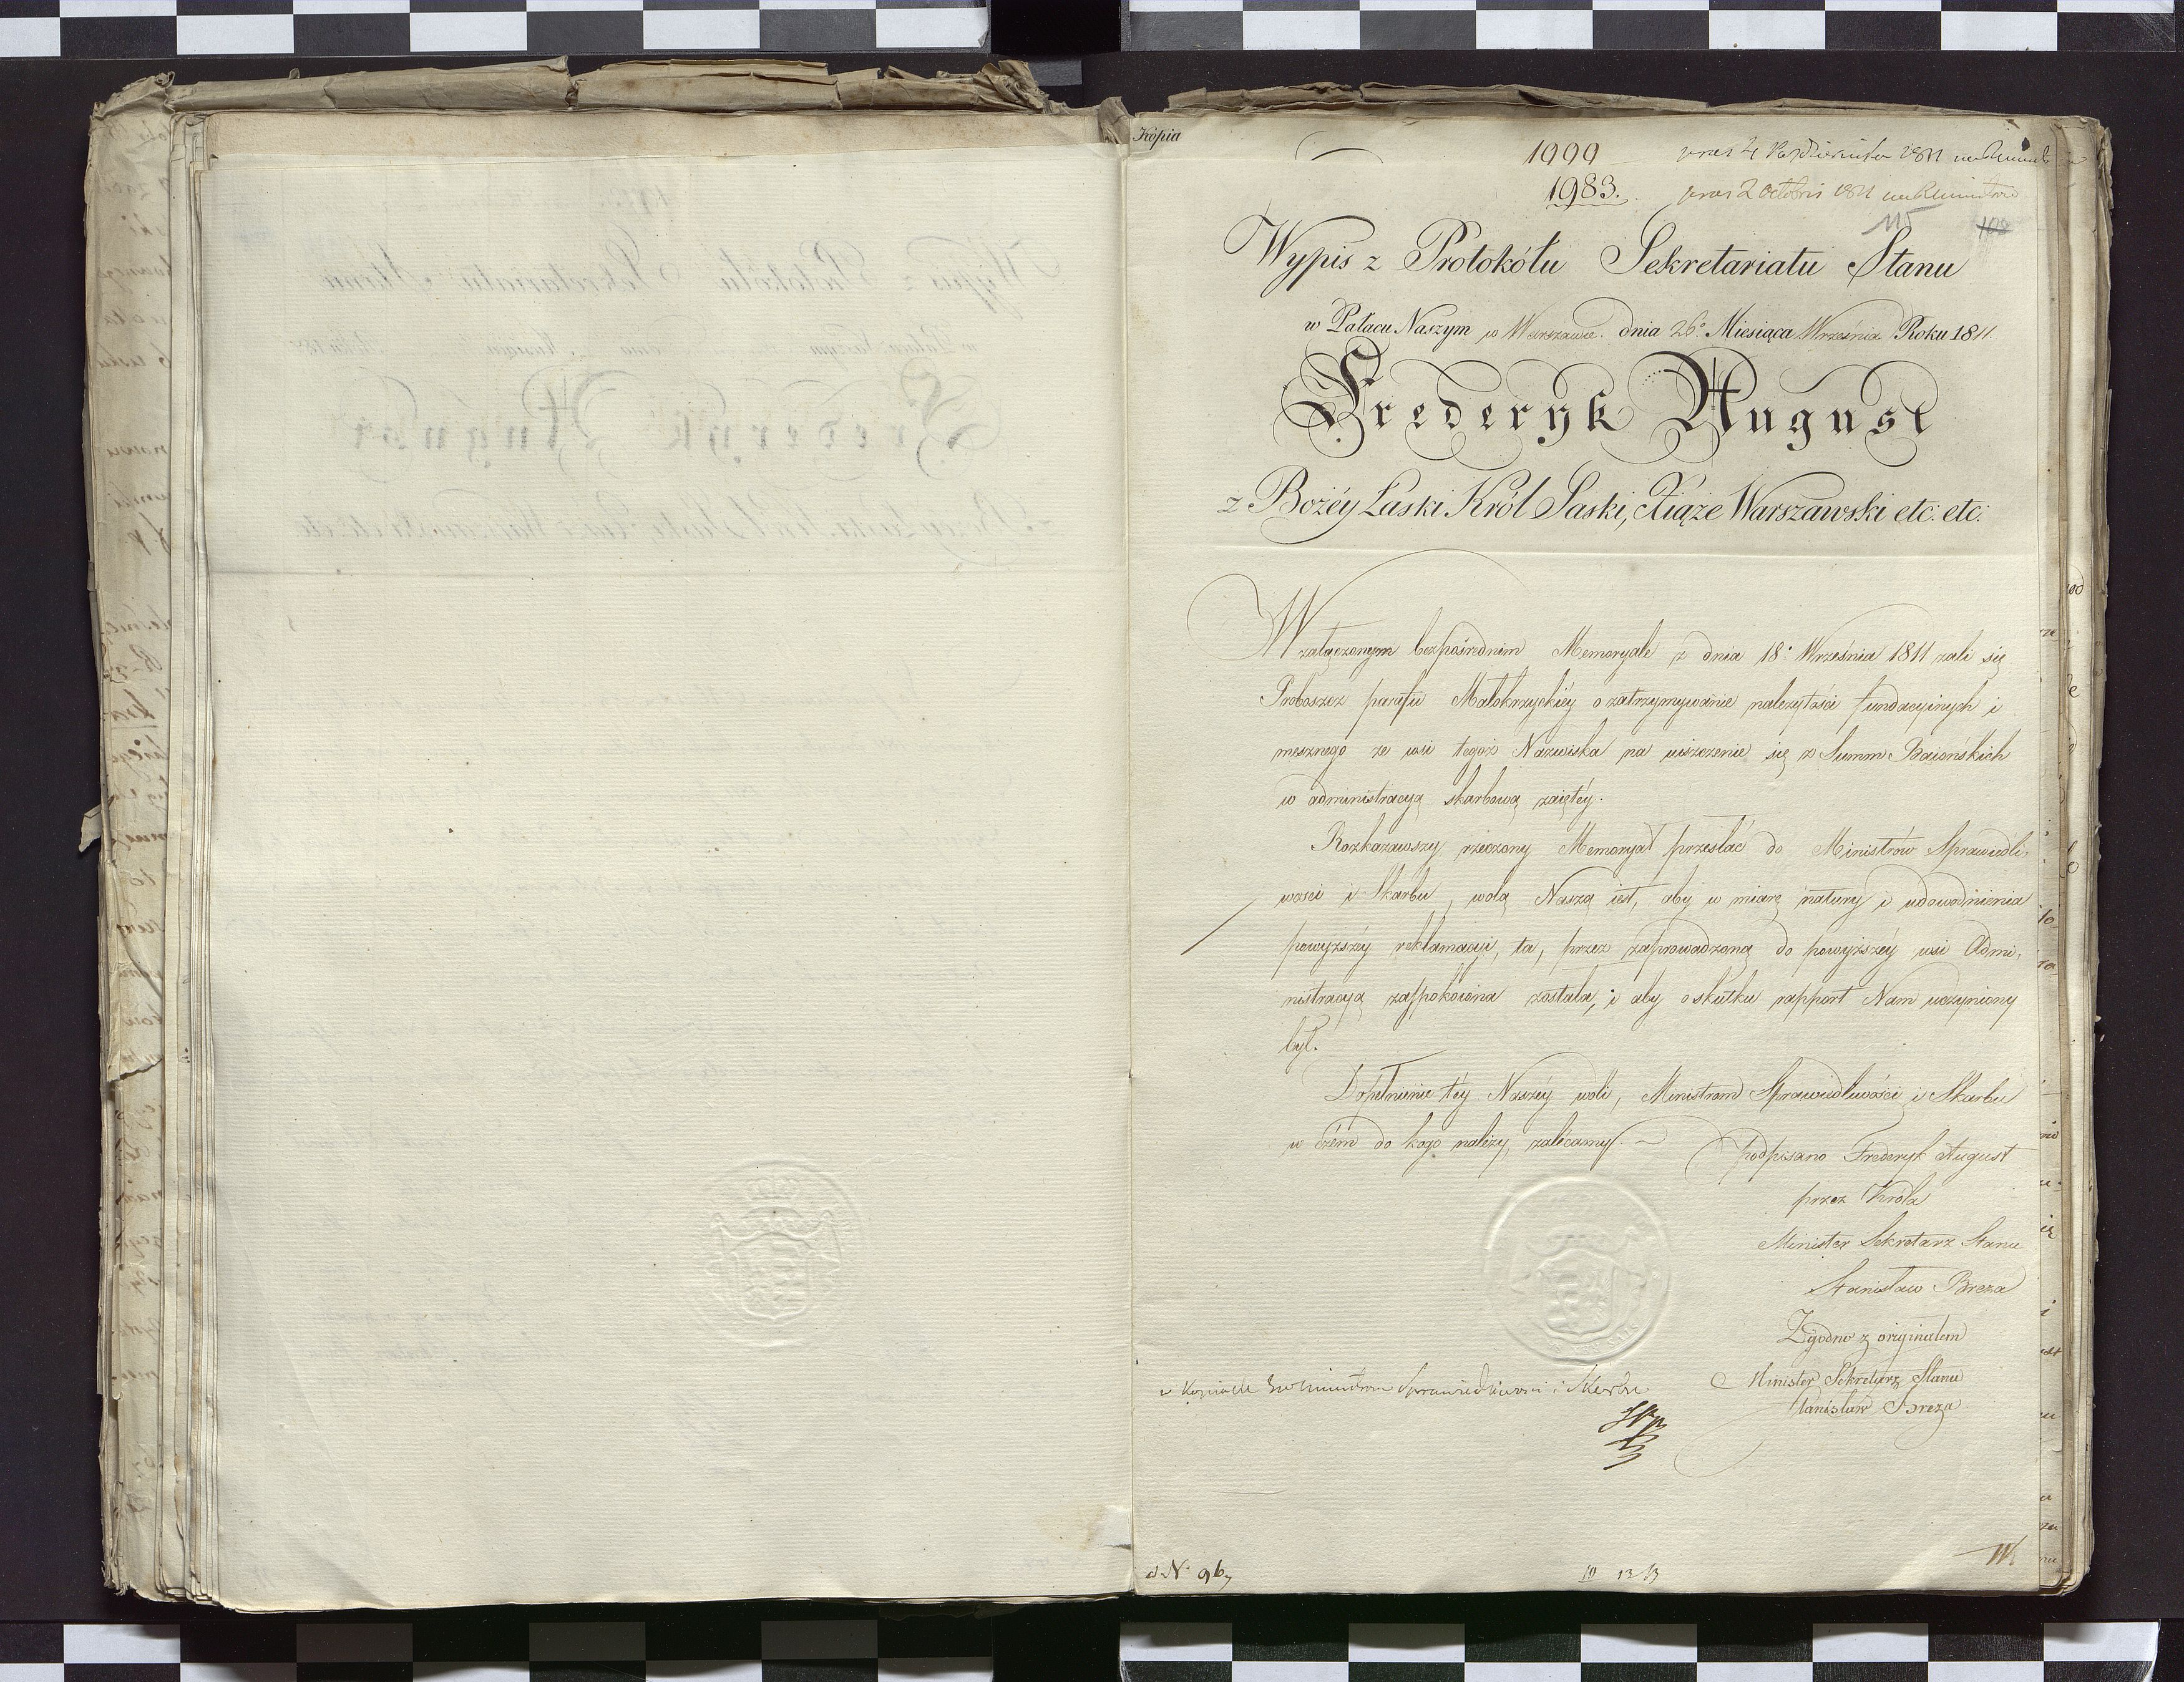 Kopia
1999 praes 4 Października 1811
1983. praes 2 Octobris 1811
115 108
Wypis z Protokółu Sekretariatu Stanu
w Pałacu Naszym w Warszawie. dnia 26º Miesiąca Września Roku 1811.
Frederyk August
z Bożéy Łaski Król Saski, Xiąże Warszawski etc: etc:
W załączonym bezpośrednim Memoryale z dnia 18º Września 1811 żali się
Proboszcz parafii Małokrzyckiéy o zatrzymywanie należytości fundacyinych i
mesznego ze wsi tegoż Nazwiska na uiszczenie się z Summ Baiońskich
w administracyą skarbową zaiętéy.
Rozkazawszy rzeczony Memoryał przesłać do Ministrów Sprawiedli-
wości i Skarbu, wolą Naszą iest, aby w miarę natury i udowodnienia
powyższéy reklamacyi, ta, przez zaprowadzoną do powyższéy wsi Admi-
nistracyą zaspokoiona została, i aby o skutku rapport Nam uczyniony
był.
Dopełnienie téy Naszéy woli, Ministrom Sprawiedliwości i Skarbu
w czém do kogo należy, zalecamy.
podpisano Frederyk August
przez Króla
Minister Sekretarz Stanu
Stanisław Breza
Zgodno z oryginałem
Minister Sekretarz Stanu
Stanisław Breza
w Kopiach Sprawiedliwości i Skarbu
d Nº 967
III 13